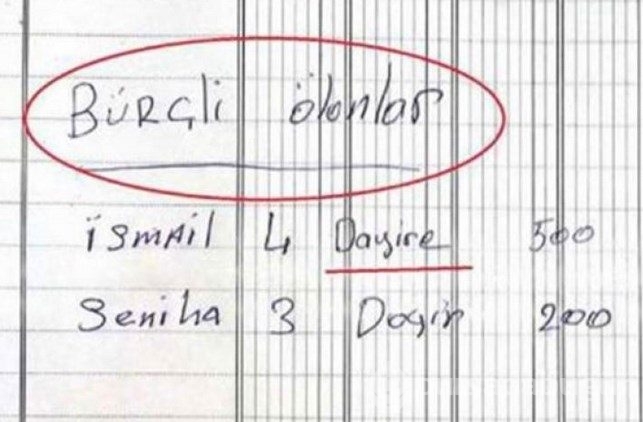 BÜRÇli ölonlar
ismail 4 Dayire 500
Seniha 3 Dayir 200